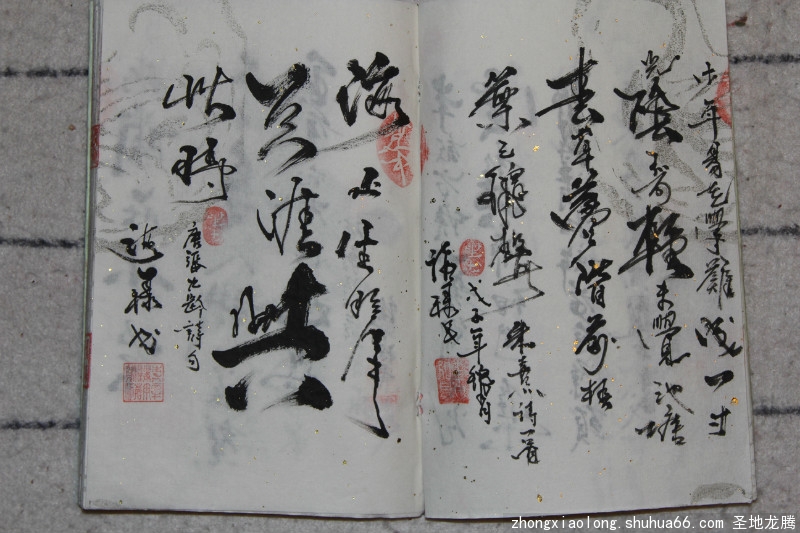 少年易老學難成一寸
光陰不可輕未覺池塘
春草夢階前梧
葉已秋聲 朱熹小詩一首
戊子年
海上生明月
天涯共
此時
唐張九齡詩句
zhongxiaolong.shuhua66.com 圣地龙腾